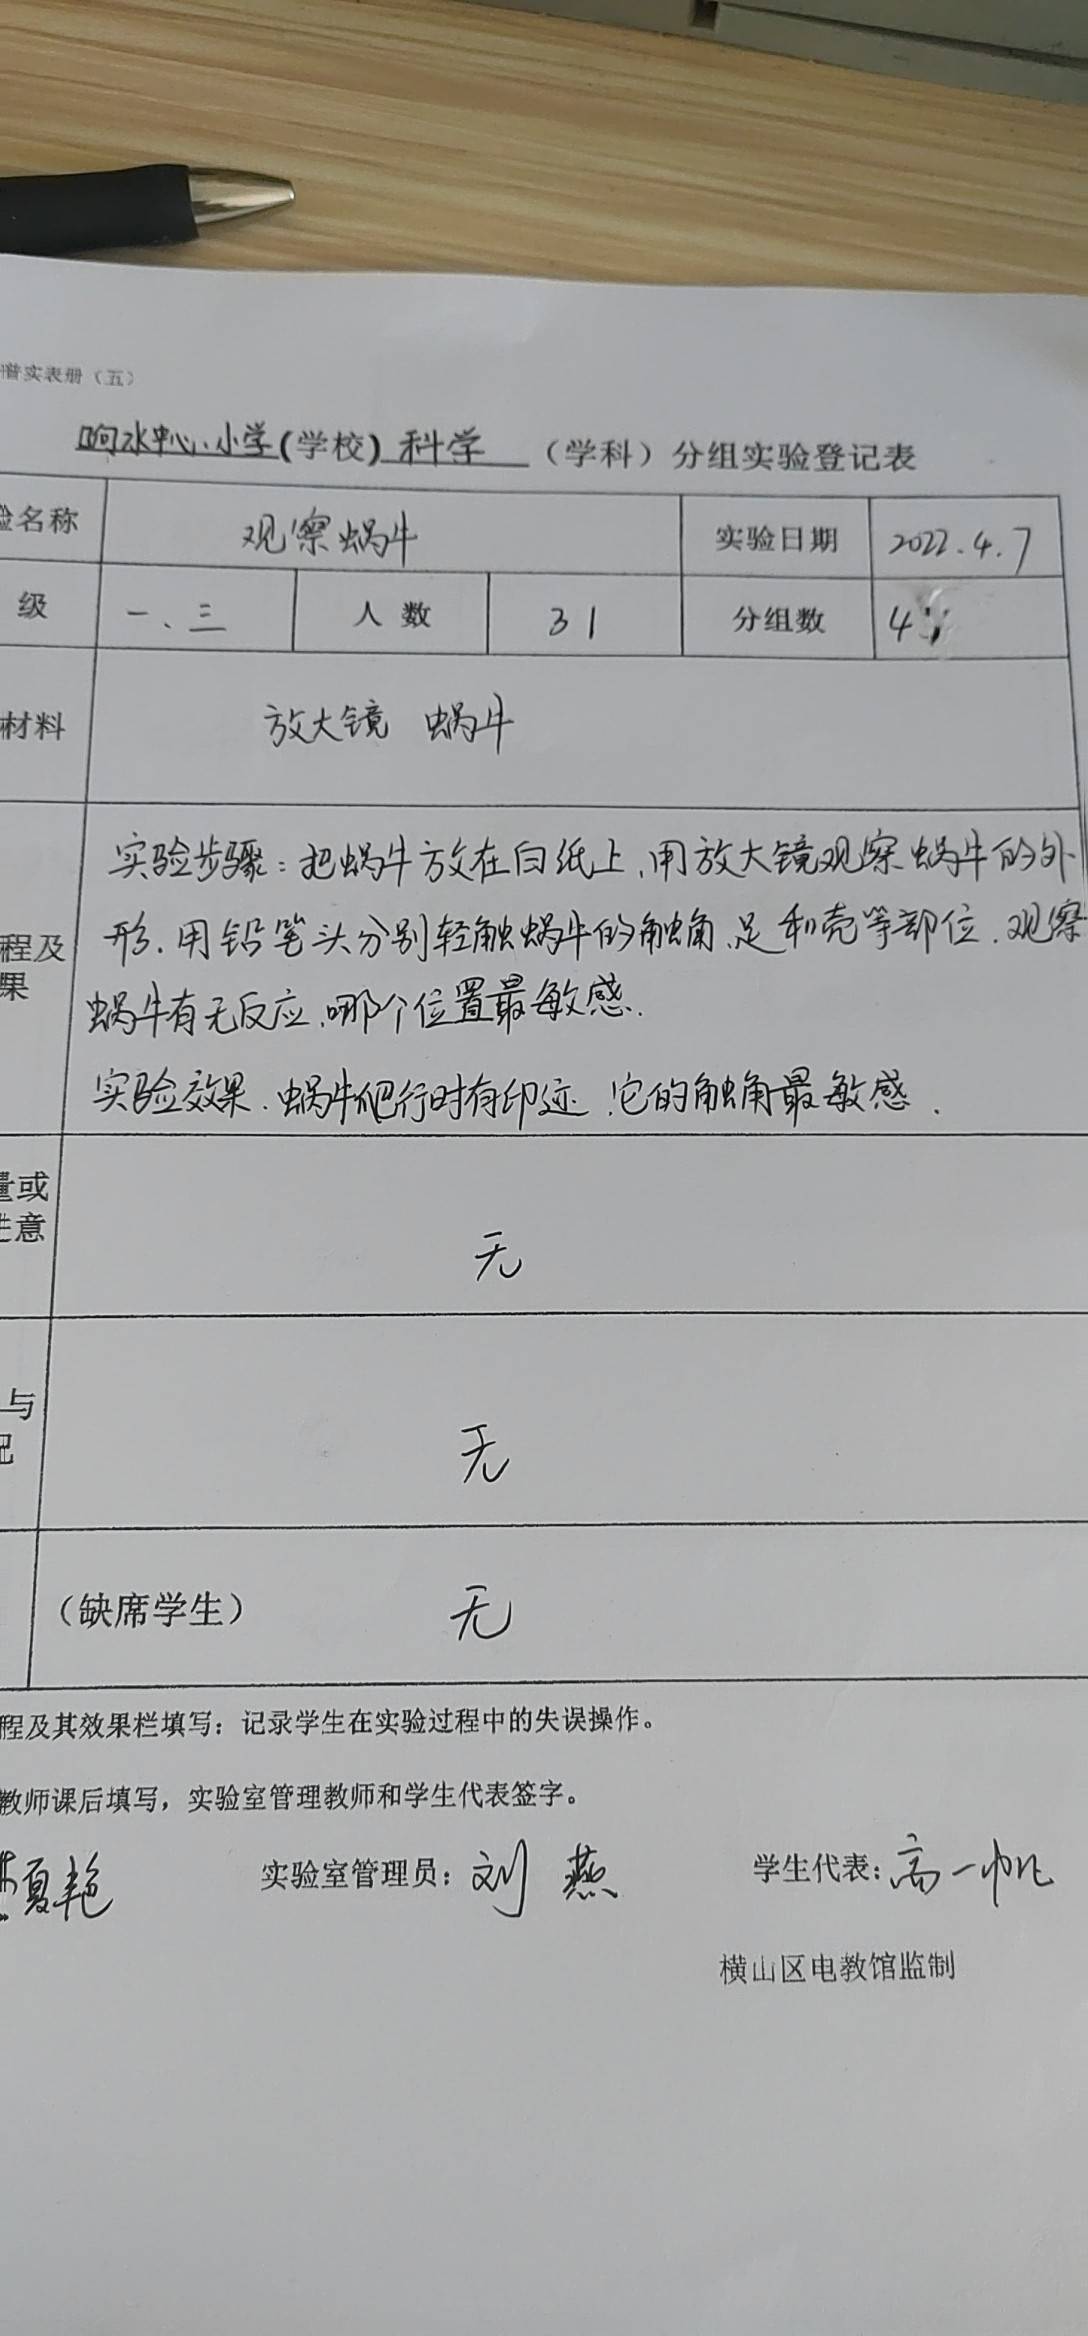 普实表册（五）
响水中心小学(学校) 科学 （学科）分组实验登记表
验名称 观察蜗牛 实验日期 2022.4.7
级 一、三 人数 31 分组数 4
材料 放大镜 蜗牛
实验步骤：把蜗牛放在白纸上,用放大镜观察蜗牛的外
程及 形.用铅笔头分别轻触蜗牛的触角、足和壳等部位.观察
果
蜗牛有无反应,哪个位置最敏感.
实验效果.蜗牛爬行时有印迹,它的触角最敏感.
量或
注意
无
与
记
无
（缺席学生） 无
程及其效果栏填写：记录学生在实验过程中的失误操作。
教师课后填写，实验室管理教师和学生代表签字。
夏艳 实验室管理员：刘燕 学生代表：高一帆
横山区电教馆监制